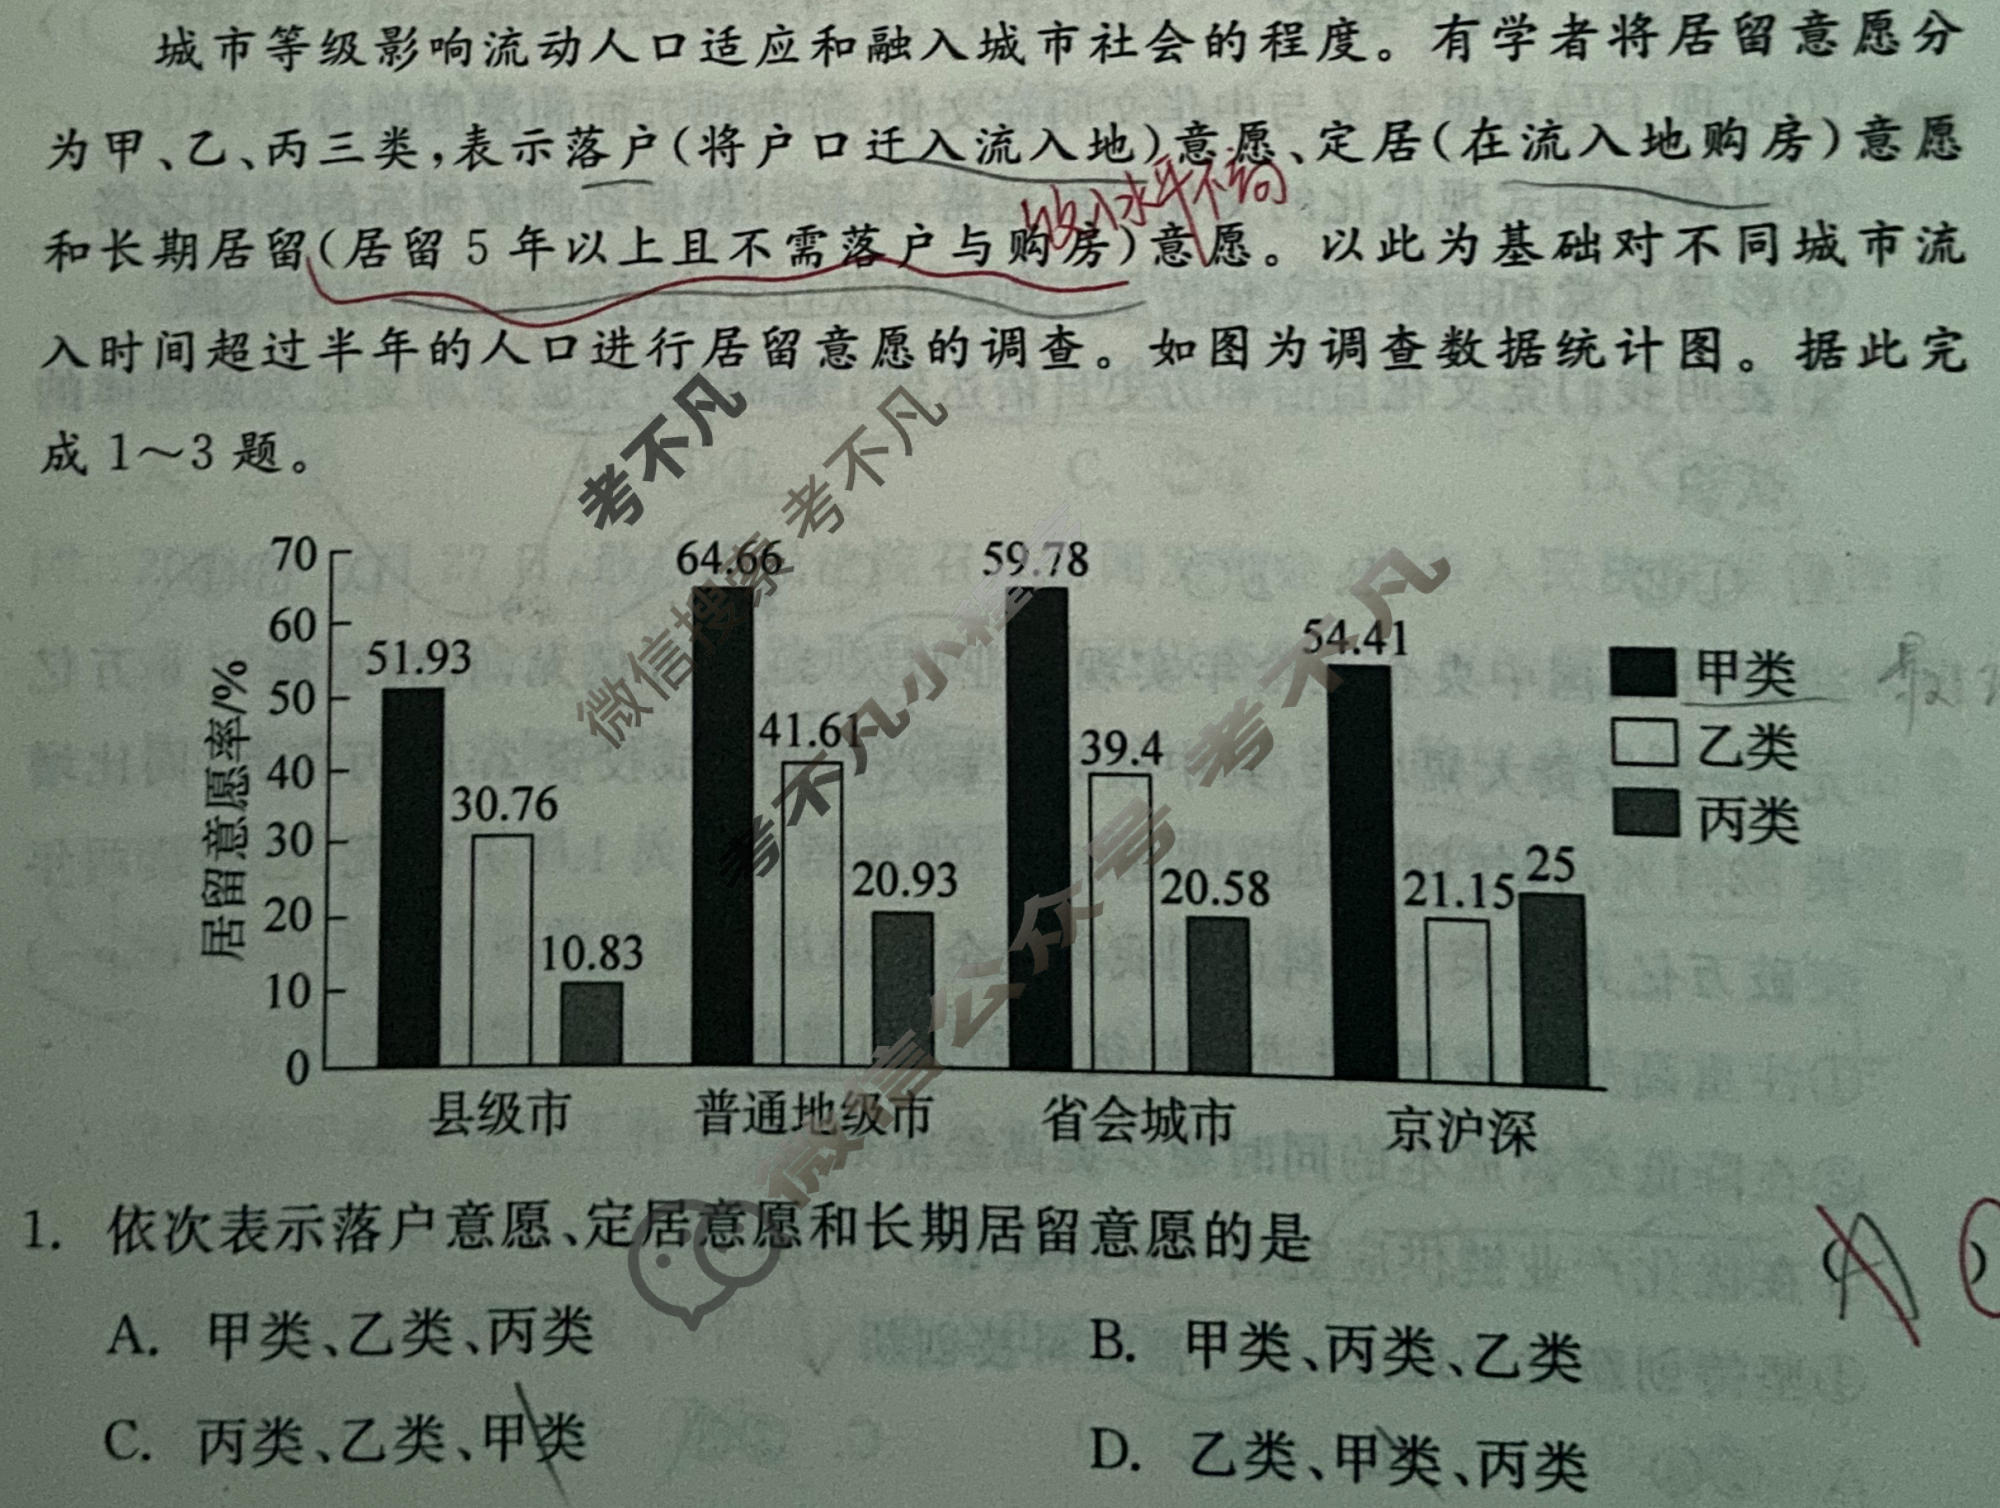 城市等级影响流动人口适应和融入城市社会的程度。有学者将居留意愿分
为甲、乙、丙三类,表示落户(将户口迁入流入地)意愿、定居(在流入地购房)意愿
和长期居留(居留5年以上且不需落户与购房)意愿。以此为基础对不同城市流
入时间超过半年的人口进行居留意愿的调查。如图为调查数据统计图。据此完
成1～3题。
考不凡
微信搜索 考不凡
考不凡小程序
微信公众号 考不凡
居留意愿率/%
70
60
50
40
30
20
10
0
51.93
30.76
10.83
64.66
41.61
20.93
59.78
39.4
20.58
54.41
21.15
25
甲类
乙类
丙类
县级市
普通地级市
省会城市
京沪深
1. 依次表示落户意愿、定居意愿和长期居留意愿的是
( A )
A. 甲类、乙类、丙类
B. 甲类、丙类、乙类
C. 丙类、乙类、甲类
D. 乙类、甲类、丙类